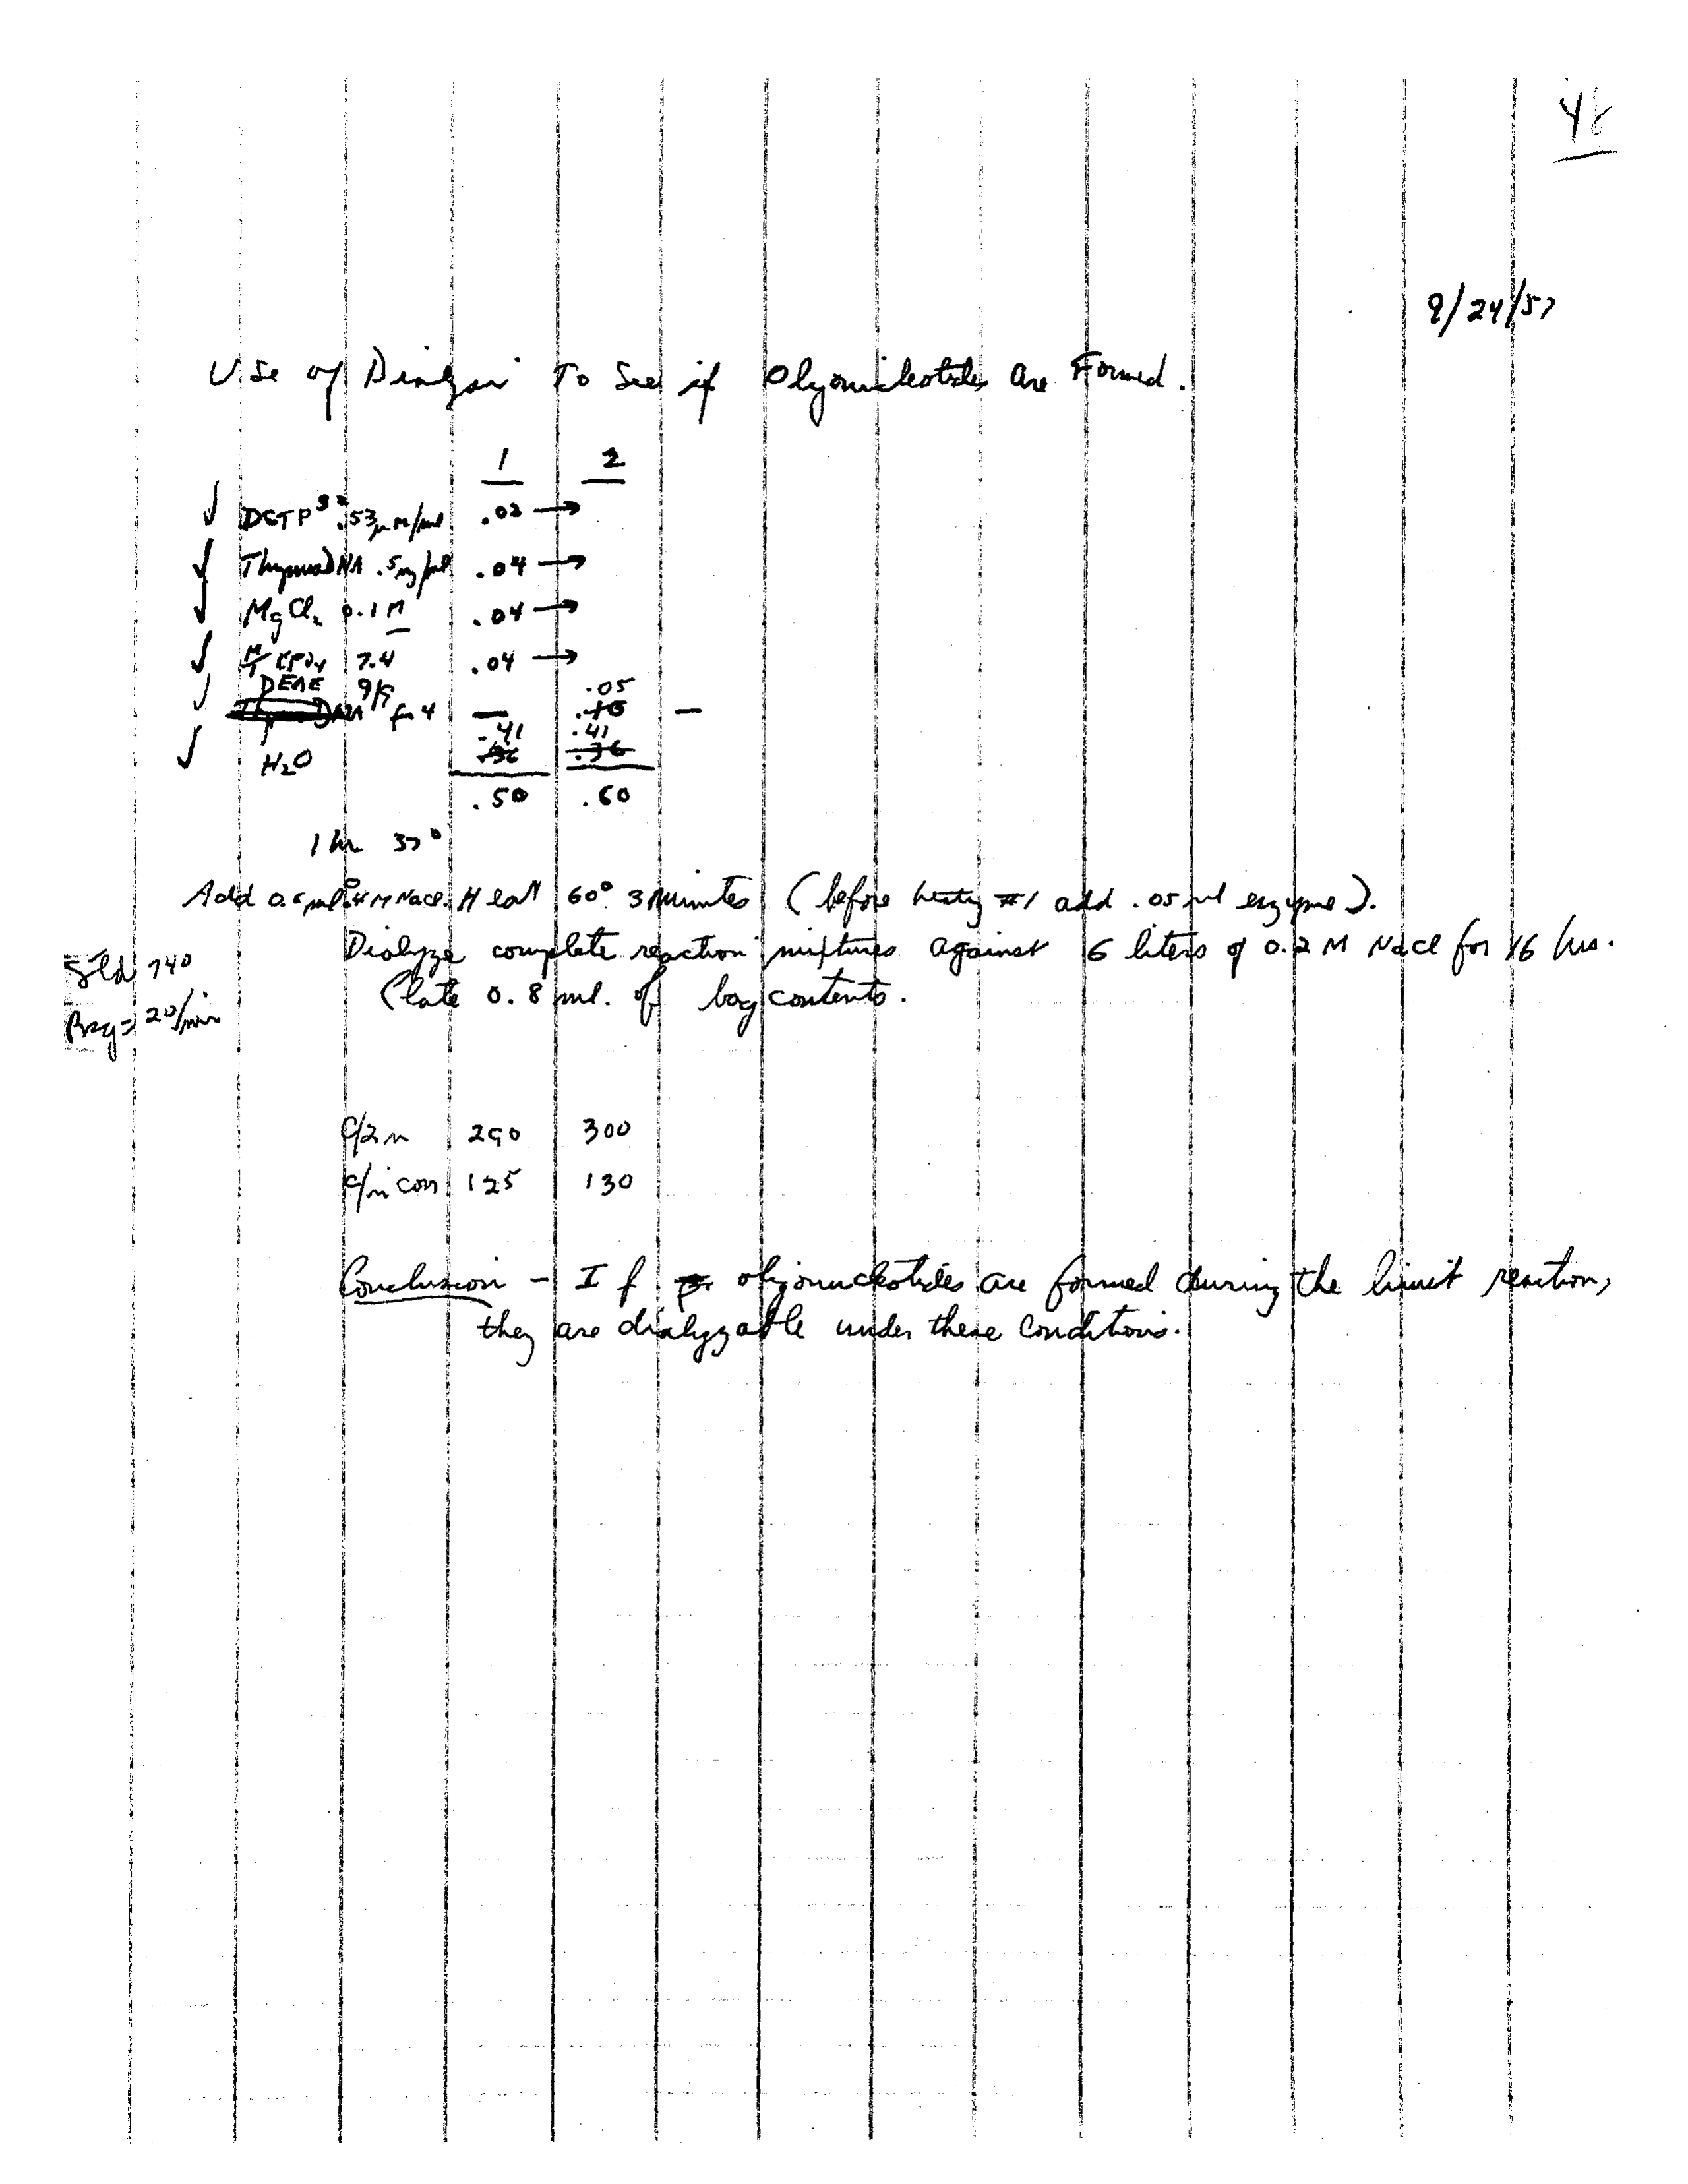 48
9/24/57
Use of Dialysis To See if Olyonucleotides Are Formed.
1 2
✓ DCTP³² .53 μM/ml .02 →
✓ Thymus DNA .5mg/ml .04 →
✓ MgCl₂ 0.1 M .04 →
✓ M/1 KPO₄ 7.4 .04 →
✓ DEAE 9/9 fr 4 — .05 —
✓ H₂O .41 .41
.50 .60
1 hr 37°
Add 0.5 ml 0.4 M NaCl. Heat 60° 3 Minutes (before heating #1 add .05 ml enzyme).
Dialyze complete reaction mixtures against 6 liters of 0.2 M NaCl for 16 hrs.
Std 740
Plate 0.8 ml. of bag contents.
= 20/min
C/2m 290 300
c/m corr 125 130
Conclusion - If oligonucleotides are formed during the limit reaction,
they are dialyzable under these conditions.